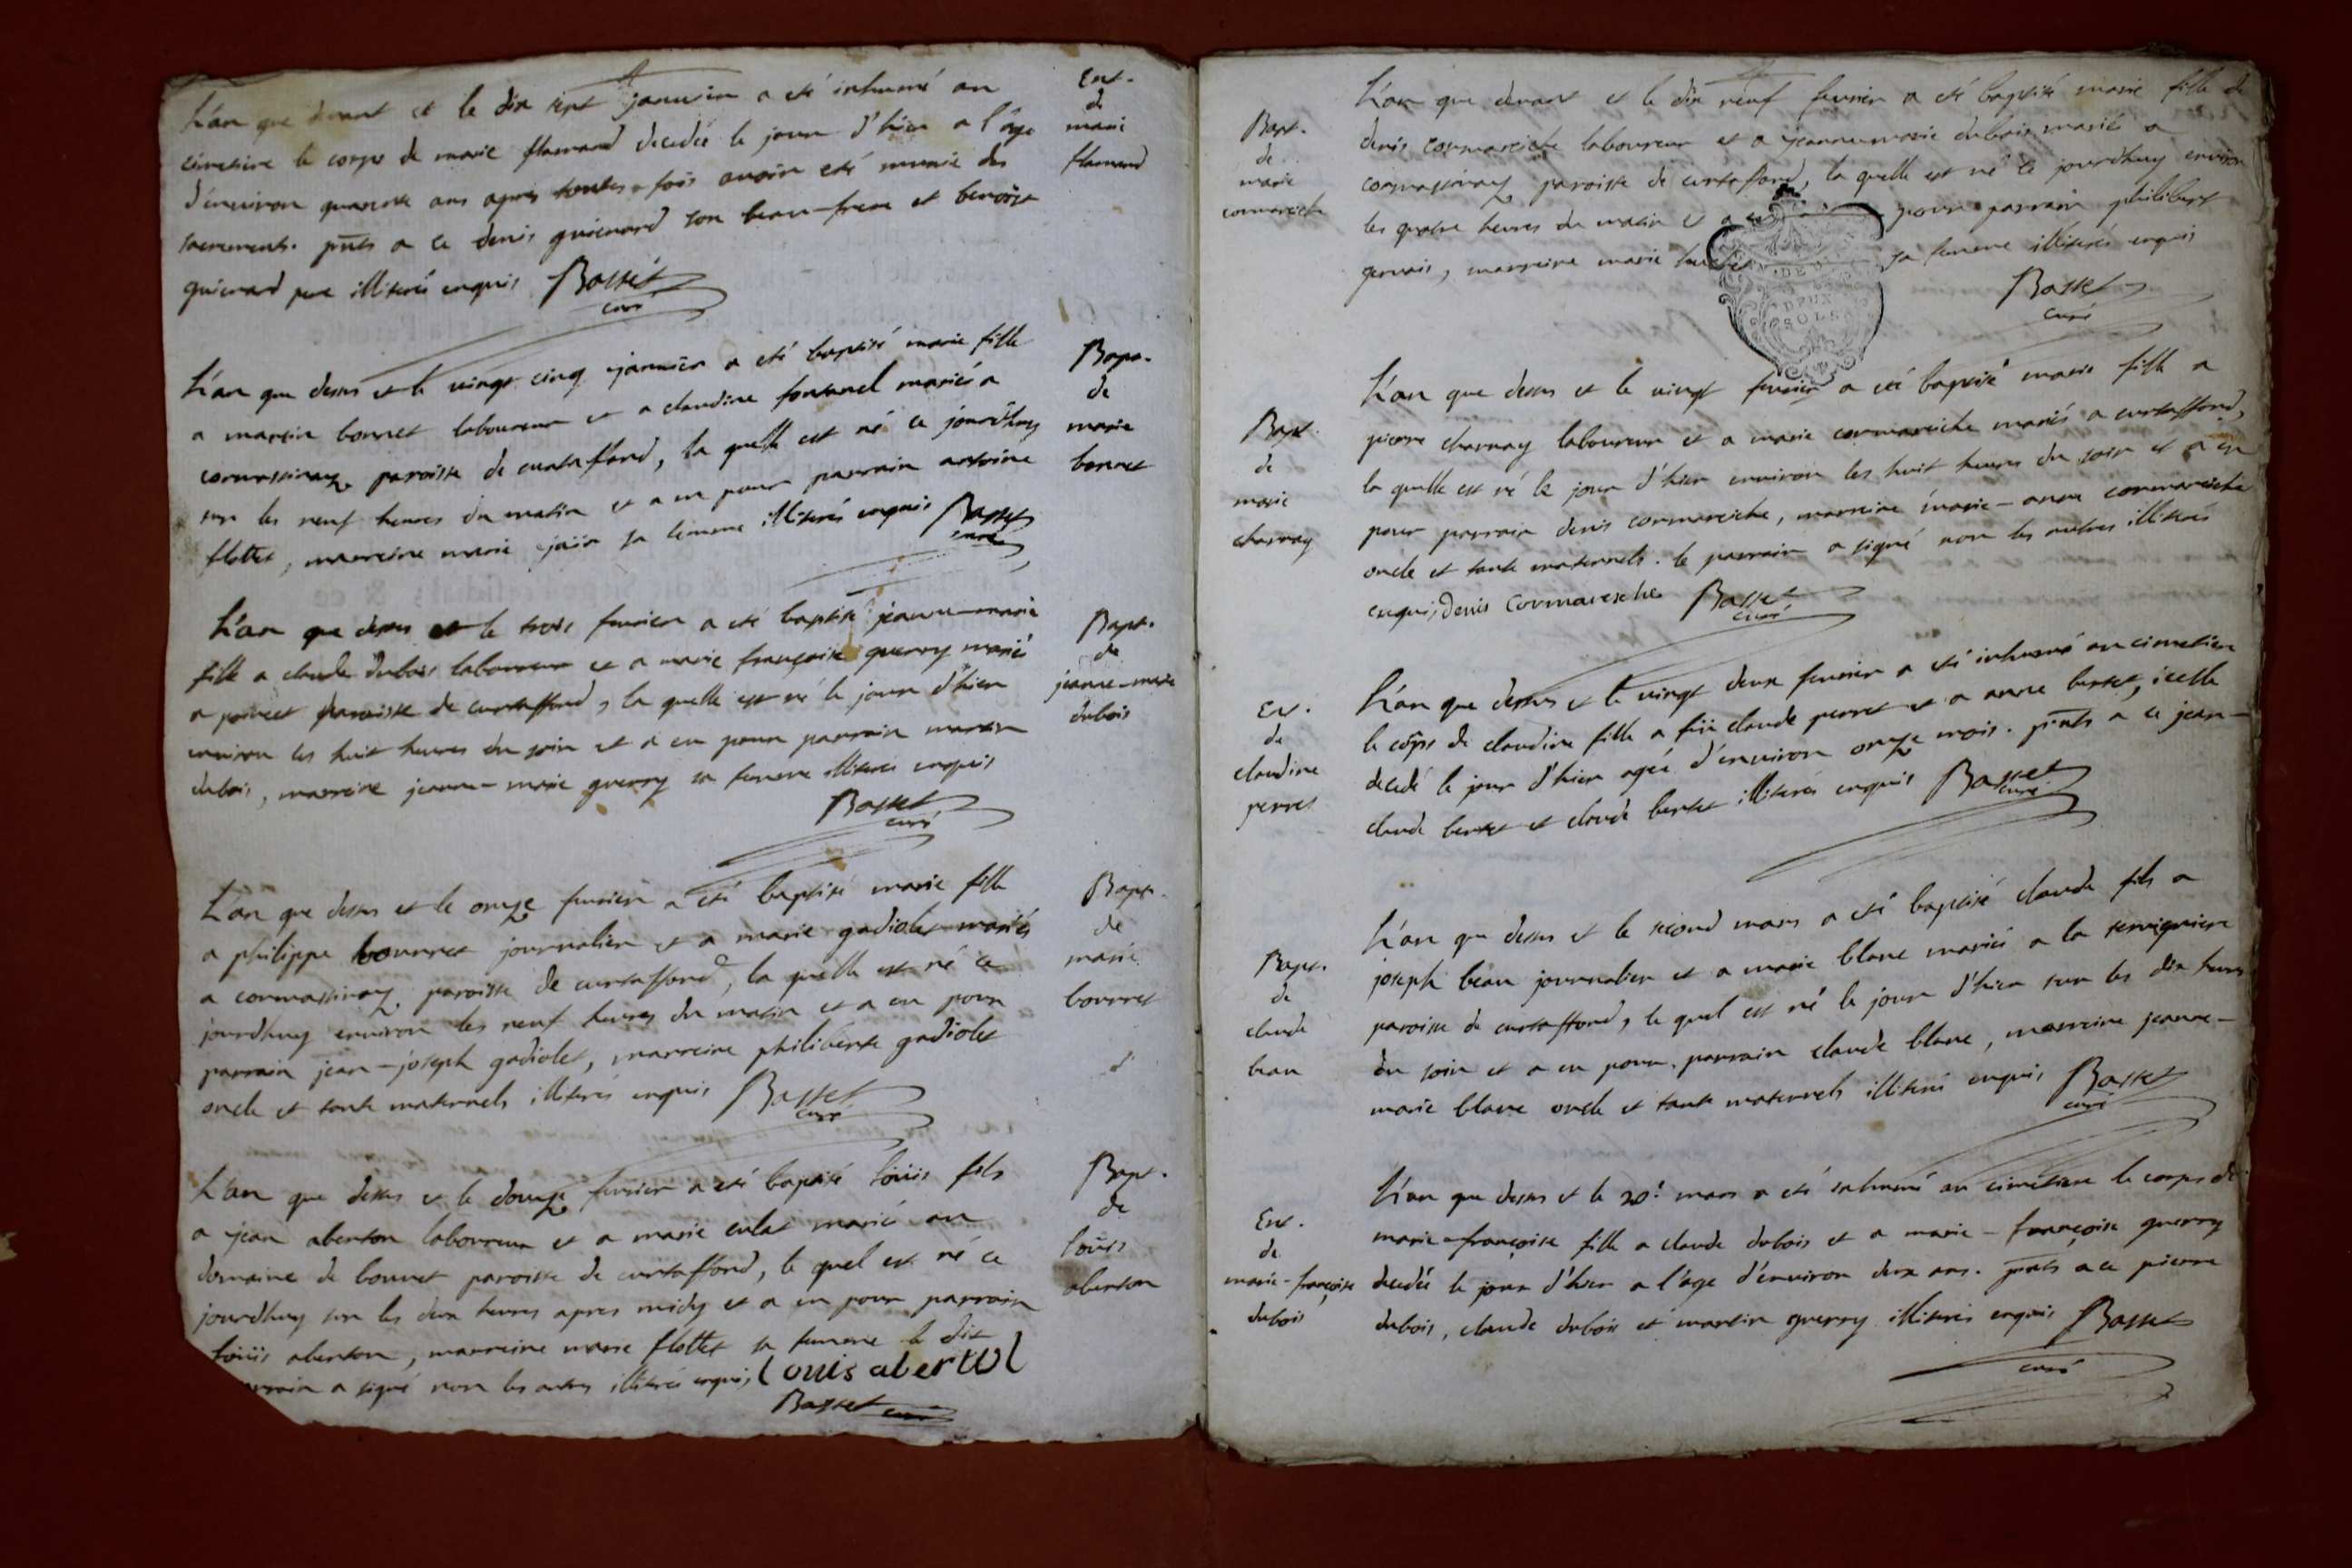 L'an que devant et le dix sept janvier a eté inhumé au
cimetiere le corps de marie flamand decedée le jour d'hier a l'âge
d'environ quarente ans apres toutes-fois avoir eté munie des
sacrements. pnts a ce denis guicnard son beau-frere et benoist
guicnard pere illiterés enquis Basset
curé
Ent.
de
marie
flamand
L'an que dessus et le vingt cinq janvier a eté baptisé marie fille
a martin bonnet laboureur et a claudine fontanel mariés a
cormassinay paroisse de curtaffond, la quelle est né ce jourdhuy
sur les neuf heures du matin et a eu pour parrain antoine
flottet, marreine marie sa femme illiterés enquis Basset
curé
Bapt.
de
marie
bonnet
L'an que dessus et le trois fevrier a eté baptisé jeanne-marie
fille a claude dubois laboureur et a marie françoise guerry mariés
a poncet paroisse de curtaffond, la quelle est né le jour d'hier
environ les huit heures du soir et a eu pour parrain martin
dubois, marreine jeanne-marie guerry sa femme illiterés enquis
Basset
curé
Bapt.
de
jeanne-marie
dubois
L'an que dessus et le onze fevrier a eté baptisé marie fille
a philippe bourret journalier et a marie gadiolet mariés
a cormassinay paroisse de curtaffond, la quelle est né ce
jourdhuy environ les neuf heures du matin et a eu pour
parrain jean-joseph gadiolet, marreine philiberte gadiolet
oncle et tante maternels illiterés enquis Basset
curé
Bapt.
de
marie
bourret
L'an que dessus et le douze fevrier a eté baptisé loüis fils
a jean aberton laboureur et a marie culat mariés au
domaine de bonnet paroisse de curtaffond, le quel est né ce
jourdhuy sur les deux heures apres midy et a eu pour parrain
loüis aberton, marreine marie flottet sa femme le dit
parrain a signé non les autres illiterés enquis Louis aberton
Basset curé
Bapt.
de
loüis
aberton
L'an que devant et le dix neuf fevrier a eté baptisé marie fille de
denis cormareiche laboureur et a jeanne-marie dubois mariés a
cormassinay paroisse de curtaffond, la quelle est né ce jourdhuy environ
les quatre heures du matin et a eu pour parrain philibert
gervais, marreine marie sa femme illiterés enquis
Basset
curé
DEUX
SOLS
Bapt.
de
marie
cormareiche
L'an que dessus et le vingt fevrier a eté baptisé marie fille a
pierre charnay laboureur et a marie cormareiche mariés a curtaffond,
la quelle est né le jour d'hier environ les huit heures du soir et a eu
pour parrain denis cormareiche, marreine marie-anne cormareiche
oncle et tante maternels. le parrain a signé non les autres illiterés
enquis, denis Cormaresche Basset
curé
Bapt.
de
marie
charnay
L'an que dessus et le vingt deux fevrier a eté inhumé au cimetiere
le corps de claudine fille a feü claude perret et a anne bertet, icelle
decedé le jour d'hier agée d'environ onze mois. pnts a ce jean-
claude bertet et claude bertet illiterés enquis Basset
curé
Ent.
de
claudine
perret
L'an que dessus et le second mars a eté baptisé claude fils a
joseph beau journalier et a marie blanc mariés a la servigniere
paroisse de curtaffond, le quel est né le jour d'hier sur les dix heures
du soir et a eu pour parrain claude blanc, marreine jeanne-
marie blanc oncle et tante maternels illiterés enquis Basset
curé
Bapt.
de
claude
beau
L'an que dessus et le 20e. mars a eté inhumé au cimetiere le corps de
marie-françoise fille a claude dubois et a marie-françoise guerry
decedée le jour d'hier a l'age d'environ deux ans. pnts a ce pierre
dubois, claude dubois et martin guerry illiterés enquis Basset
curé
Ent.
de
marie-françoise
dubois